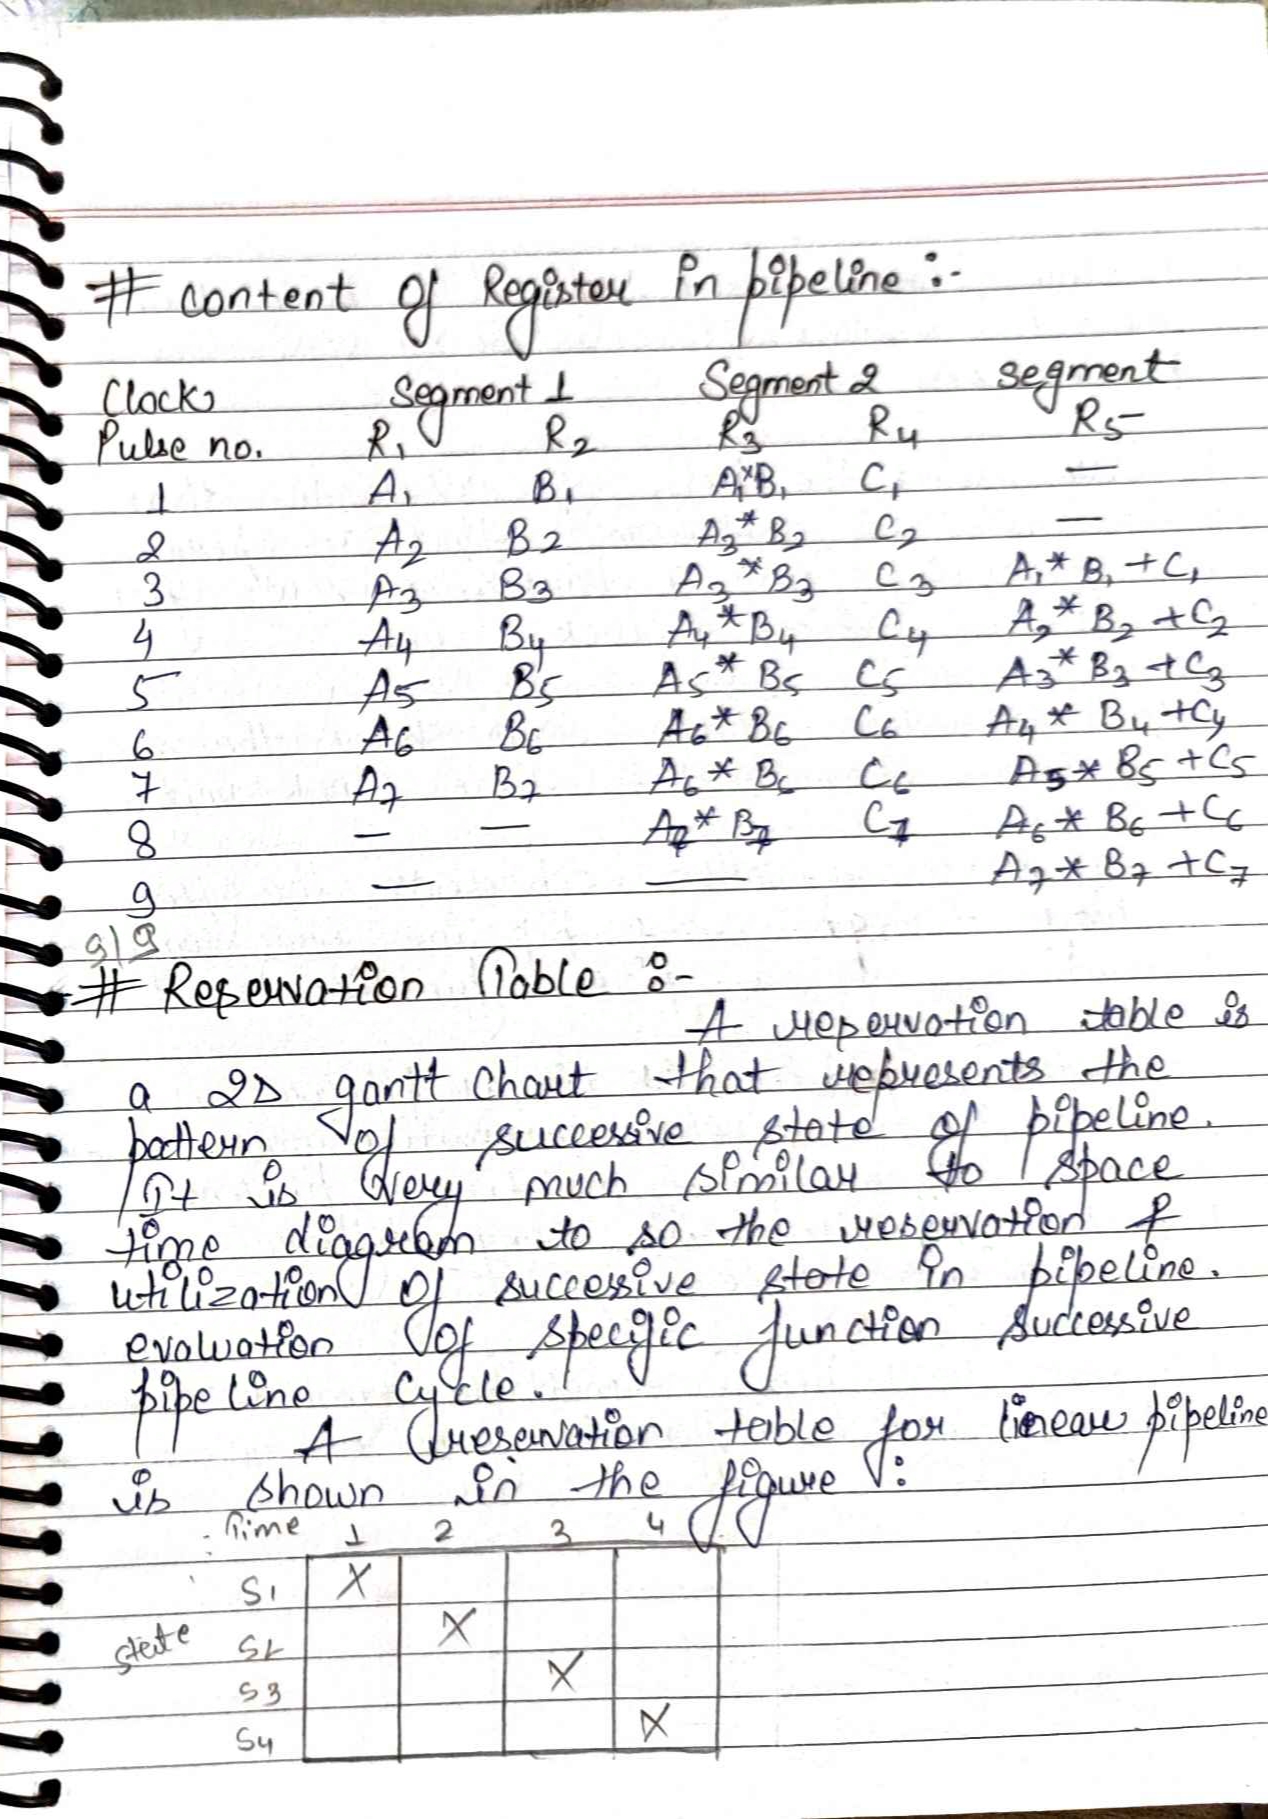 # content of Register in pipeline :-
Clock Segment 1 Segment 2 segment
Pulse no. R1 R2 R3 R4 R5
1 A1 B1 A1*B1 C1 —
2 A2 B2 A3*B2 C2 —
3 A3 B3 A3*B3 C3 A1*B1+C1
4 A4 B4 A4*B4 C4 A2*B2+C2
5 A5 B5 A5*B5 C5 A3*B3+C3
6 A6 B6 A6*B6 C6 A4*B4+C4
7 A7 B7 A6*B6 C6 A5*B5+C5
8 — — A7*B7 C7 A6*B6+C6
9 — — A7*B7+C7
9/9
# Reservation Table :-
A reservation table is
a 2D gantt chart that represents the
pattern of successive state of pipeline.
It is very much similar to space
time diagram to so the reservation &
utilization of successive state in pipeline.
evaluation of specific function successive
pipeline cycle.
A reservation table for linear pipeline
is shown in the figure :
Time 1 2 3 4
S1 X
state S2 X
S3 X
S4 X